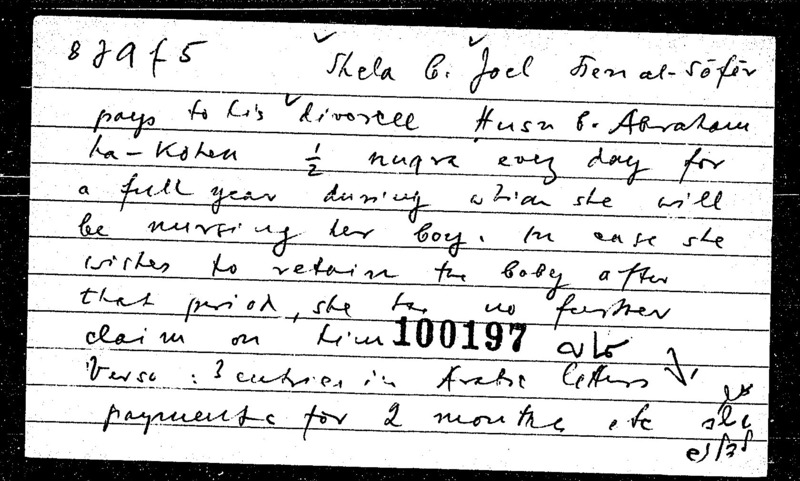 8 J 9 f 5 Shela b. Joel al-Sōfēr
pays to his divorcee Husn b. Abraham
ha-Kohen ½ nuqra every day for
a full year during which she will
be nursing her boy. In case she
wishes to retain the baby after
that period, she has no further
claim on him 100197
Verso : 3 entries in Arabic letters
payments for 2 months etc